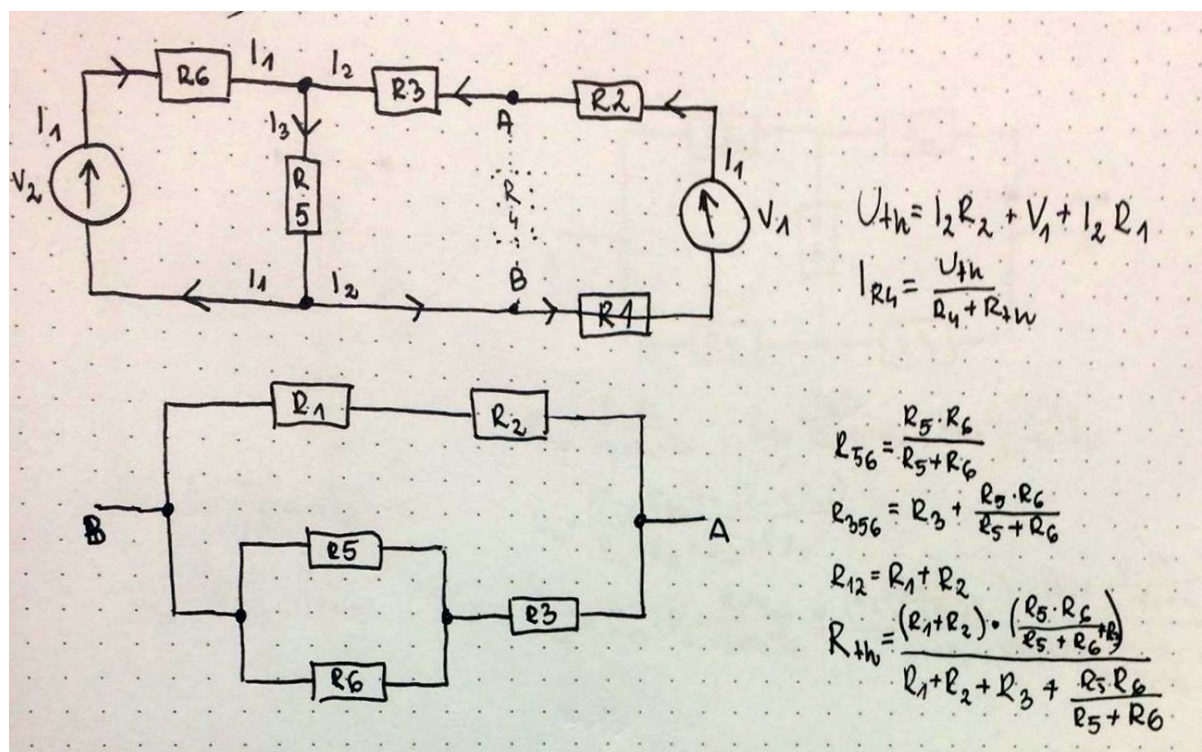 R6 I₁ I₂ R3 A R2
I₁ I₃ I₁
V₂ R5 R4 V₁
I₁ I₂ B R1
U_th = I₂R₂ + V₁ + I₂R₁
I_R4 = U_th / (R₄ + R_th)
R1 R2
B A
R5
R3
R6
R₅₆ = R₅·R₆ / (R₅+R₆)
R₃₅₆ = R₃ + R₅·R₆ / (R₅+R₆)
R₁₂ = R₁ + R₂
R_th = (R₁+R₂)·(R₅·R₆ / (R₅+R₆) + R₃) / (R₁+R₂+R₃ + R₅·R₆ / (R₅+R₆))